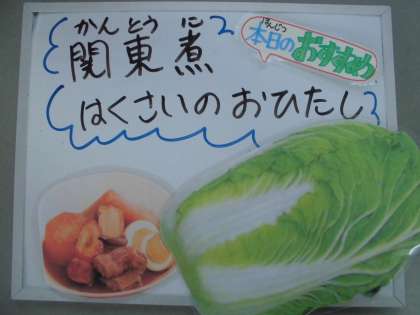 かんとう に
関東煮
ほんじつ
本日の
おすすめ
はくさいのおひたし